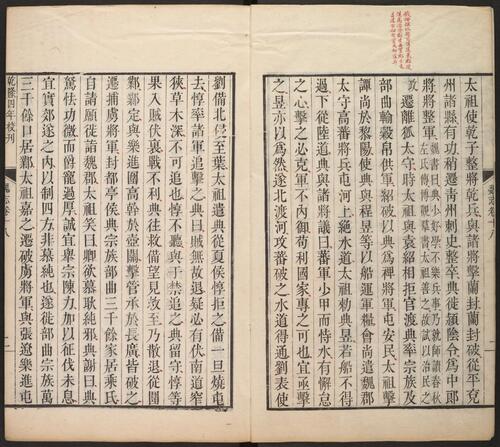 太祖使乾子整將乾兵與諸將擊蘭封蘭封破從平兗
州諸縣有功稍遷青州刺史整卒典徙潁陰令為中郎
將將整軍
魏書曰典少好學不樂兵事乃就師讀春秋
左氏傳博觀羣書太祖善之故試以治民之
政
遷離狐太守時太祖與袁紹相拒官渡典率宗族及
部曲輸穀帛供軍紹破以典為裨將軍屯安民太祖擊
譚尚於黎陽使典與程昱等以船運軍糧會尚遣魏郡
太守高蕃將兵屯河上絕水道太祖勑典昱若船不得
過下從陸道典與諸將議曰蕃軍少甲而恃水有懈怠
之心擊之必克軍不內御苟利國家專之可也宜亟擊
之昱亦以為然遂北渡河攻蕃破之水道得通劉表使
劉備北侵至葉太祖遣典從夏侯惇拒之備一旦燒屯
去惇率諸軍追擊之典曰賊無故退疑必有伏南道窄
狹草木深不可追也惇不聽與于禁追之典留守惇等
果入賊伏裏戰不利典往救備望見救至乃散退從圍
鄴鄴定與樂進圍高幹於壺關擊管承於長廣皆破之
遷捕虜將軍封都亭侯典宗族部曲三千餘家居乘氏
自請願徙詣魏郡太祖笑曰卿欲慕耿純邪典謝曰典
駑怯功微而爵寵過厚誠宜舉宗陳力加以征伐未息
宜實郊遂之內以制四方非慕純也遂徙部曲宗族萬
三千餘口居鄴太祖嘉之遷破虜將軍與張遼樂進屯
乾隆四年校刊
魏志卷十八
二